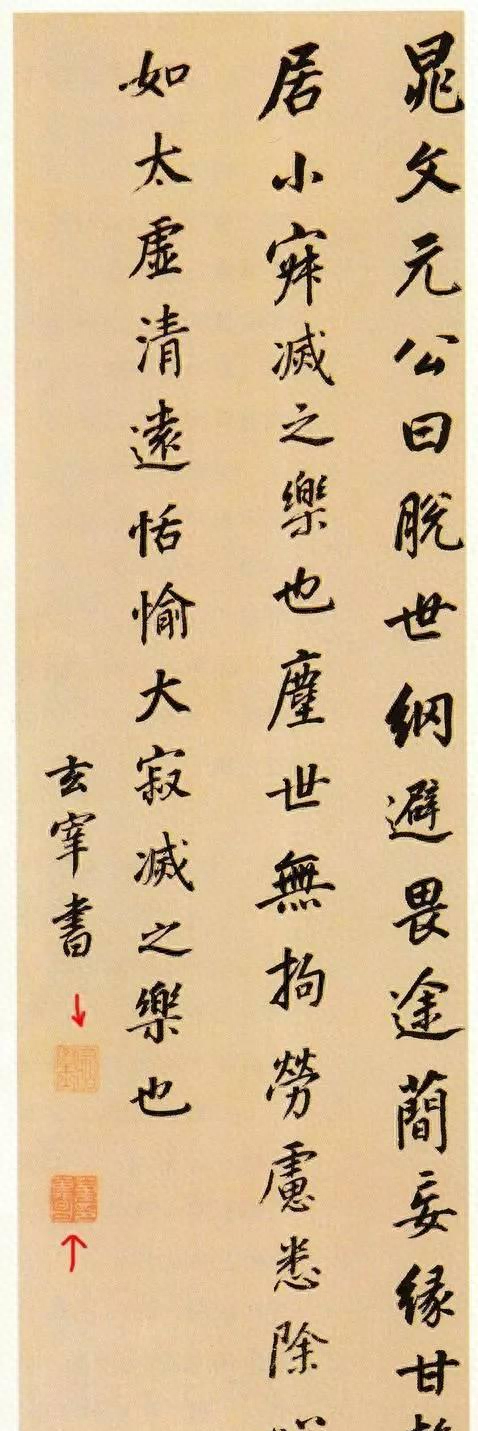 晁文元公曰脫世網避畏途蕳妄緣甘
居小寂滅之樂也塵世無拘勞慮悉除
如太虛清遠恬愉大寂滅之樂也
玄宰書